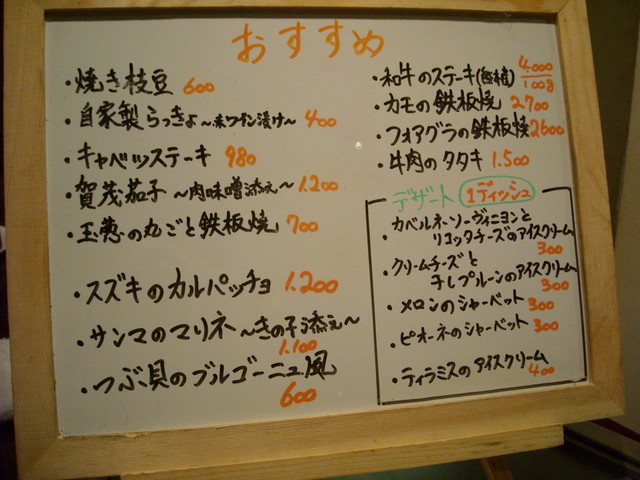 おすすめ
・焼き枝豆 600
・自家製らっきょ〜赤ワイン漬け〜 400
・キャベツステーキ 980
・賀茂茄子 〜肉味噌添え〜 1.200
・玉葱の丸ごと鉄板焼 700
・スズキのカルパッチョ 1.200
・サンマのマリネ〜きの子添え〜
1.100
・つぶ貝のブルゴーニュ風
600
・和牛のステーキ 4.000
100g
・カモの鉄板焼 2700
・フォアグラの鉄板焼 2600
・牛肉のタタキ 1.500
デザート 1ディッシュ
・カベルネ・ソーヴィニヨンと
リコッタチーズのアイスクリーム
300
・クリームチーズと
干しプルーンのアイスクリーム
300
・メロンのシャーベット 300
・ピオーネのシャーベット 300
・ティラミスのアイスクリーム
400